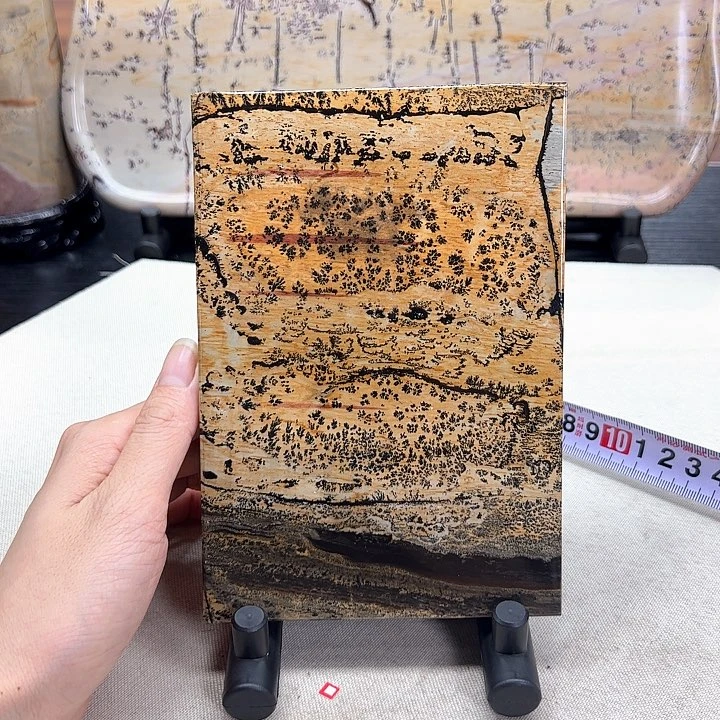 8 9 10 1 2 3 4